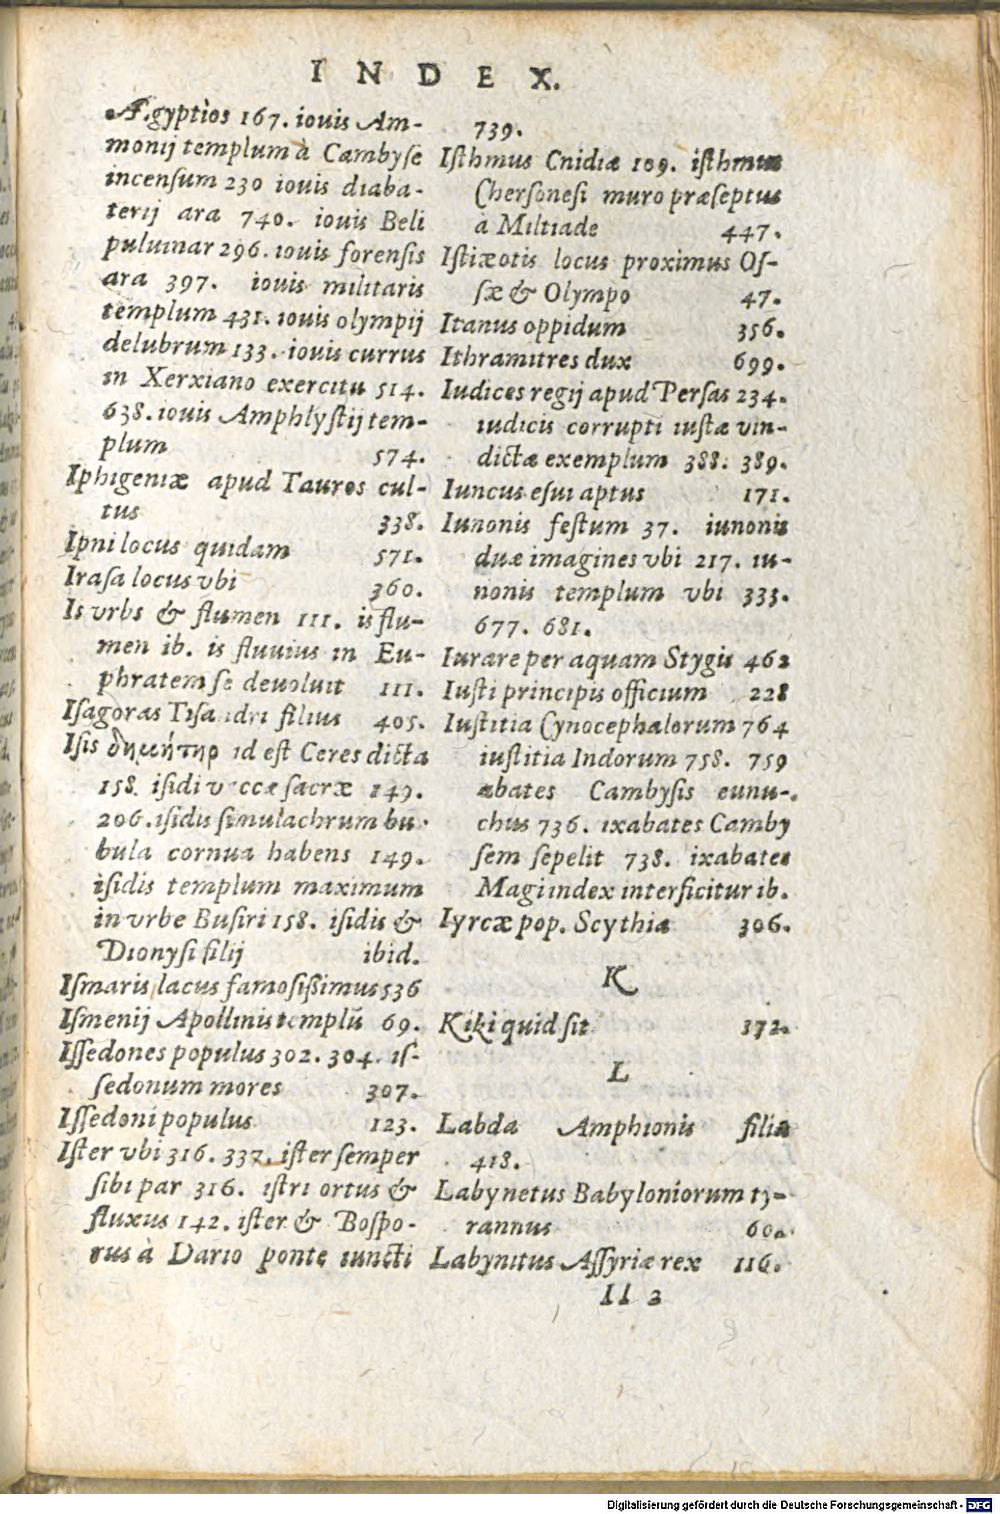 INDEX.
Ægyptios 167. iouis Am-
monij templum à Cambyse
incensum 230 iouis diaba-
terij ara 740. iouis Beli
puluinar 296. iouis forensis
ara 397. iouis militaris
templum 431. iouis olympij
delubrum 133. iouis currus
in Xerxiano exercitu 514.
638. iouis Amphlystij tem-
plum 574.
Iphigeniæ apud Tauros cul-
tus 338.
Ipni locus quidam 571.
Irasa locus vbi 360.
Is vrbs & flumen 111. is flu-
men ib. is fluuius in Eu-
phratem se deuoluit 111.
Isagoras Tisandri filius 405.
Isis δημήτηρ id est Ceres dicta
158. isidi vaccæ sacræ 149.
206. isidis simulachrum bu-
bula cornua habens 149.
isidis templum maximum
in vrbe Busiri 158. isidis &
Dionysi filij ibid.
Ismaris lacus famosißimus 536
Ismenij Apollinis templũ 69.
Issedones populus 302. 304. is-
sedonum mores 307.
Issedoni populus 123.
Ister vbi 316. 337. ister semper
sibi par 316. istri ortus &
fluxus 142. ister & Bospo-
rus à Dario ponte iuncti
739.
Isthmus Cnidiæ 109. isthmus
Chersonesi muro præseptus
à Miltiade 447.
Istiæotis locus proximus Os-
sæ & Olympo 47.
Itanus oppidum 356.
Ithramitres dux 699.
Iudices regij apud Persas 234.
iudicis corrupti iustæ vin-
dictæ exemplum 388. 389.
Iuncus esui aptus 171.
Iunonis festum 37. iunonis
duæ imagines vbi 217. iu-
nonis templum vbi 333.
677. 681.
Iurare per aquam Stygis 462
Iusti principis officium 228
Iustitia Cynocephalorum 764
iustitia Indorum 758. 759
abates Cambysis eunu-
chus 736. ixabates Camby
sem sepelit 738. ixabates
Magi index interficitur ib.
Iyrcæ pop. Scythia 306.
K
Kiki quid sit 172.
L
Labda Amphionis filia
418.
Labynetus Babyloniorum ty-
rannus 60.
Labynitus Assyriæ rex 116.
ll 3
Digitalisierung gefördert durch die Deutsche Forschungsgemeinschaft - DFG